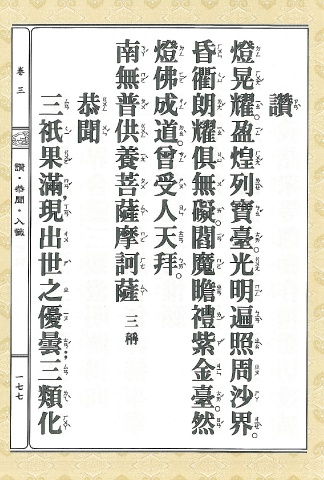 讚
燈晃耀。盈煌列寶臺。光明遍照周沙界。
昏衢朗耀俱無礙。閻魔瞻禮紫金臺。然
燈佛成道。曾受人天拜。
南無普供養菩薩摩訶薩 三稱
恭聞
三祇果滿現出世之優曇…三類化
卷三
讚・恭聞・入懺
一七七